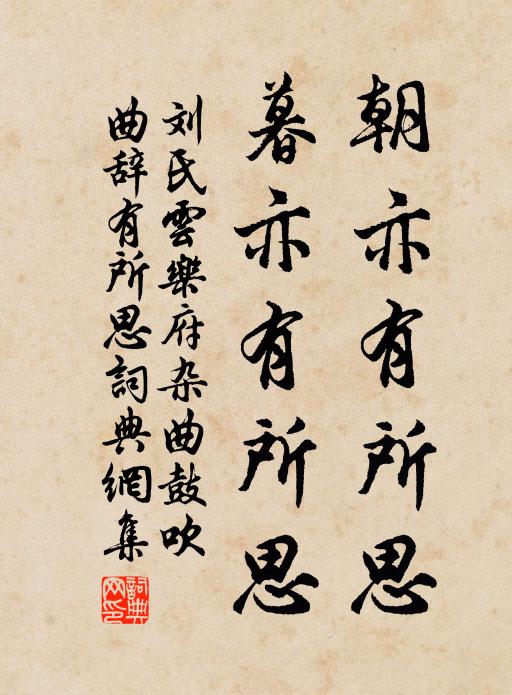 朝亦有所思
暮亦有所思
刘氏雲樂府杂曲鼓吹
曲辞有所思詞典網集
詞典
网印